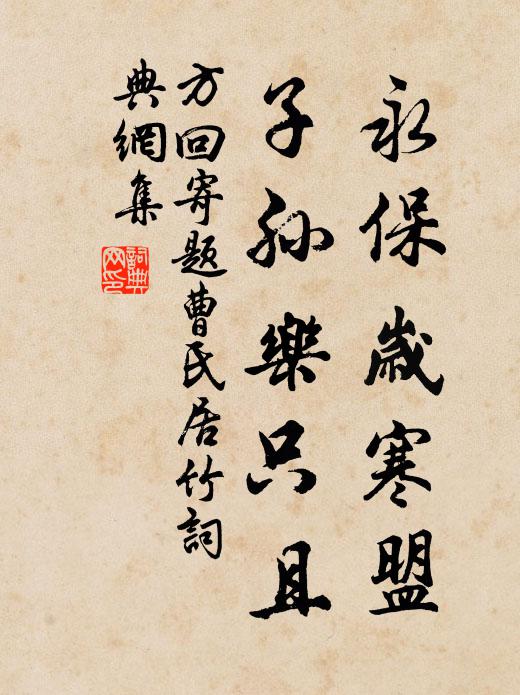 永保歲寒盟
子孫樂只且
方回寄題曹氏居竹詞
典網集
詞典
网印